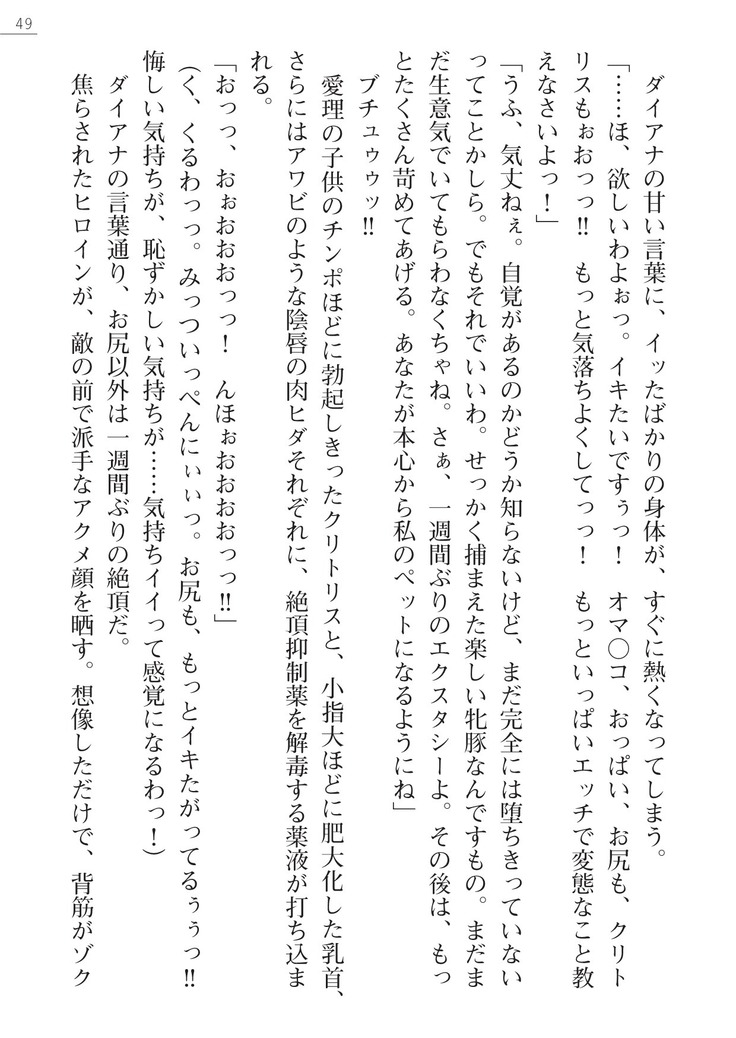 49
ダイアナの甘い言葉に、イッたばかりの身体が、すぐに熱くなってしまう。
「……ほ、欲しいわよぉっ。イキたいですぅっ！　オマ◯コ、おっぱい、お尻も、クリト
リスもぉおっっ‼　もっと気落ちよくしてっっ！　もっといっぱいエッチで変態なこと教
えなさいよっ！」
「うふ、気丈ねぇ。自覚があるのかどうか知らないけど、まだ完全には堕ちきっていない
ってことかしら。でもそれでいいわ。せっかく捕まえた楽しい牝豚なんですもの。まだま
だ生意気でいてもらわなくちゃね。さぁ、一週間ぶりのエクスタシーよ。その後は、もっ
とたくさん苛めてあげる。あなたが本心から私のペットになるようにね」
ブチュゥゥッ‼
愛理の子供のチンポほどに勃起しきったクリトリスと、小指大ほどに肥大化した乳首、
さらにはアワビのような陰唇の肉ヒダそれぞれに、絶頂抑制薬を解毒する薬液が打ち込ま
れる。
「おっっ、おぉおおおっっ！　んほぉおおおおっっ‼」
（く、くるわっっ。みっついっぺんにぃぃっ。お尻も、もっとイキたがってるぅぅっ‼
悔しい気持ちが、恥ずかしい気持ちが……気持ちイイって感覚になるわっ！）
ダイアナの言葉通り、お尻以外は一週間ぶりの絶頂だ。
焦らされたヒロインが、敵の前で派手なアクメ顔を晒す。想像しただけで、背筋がゾク